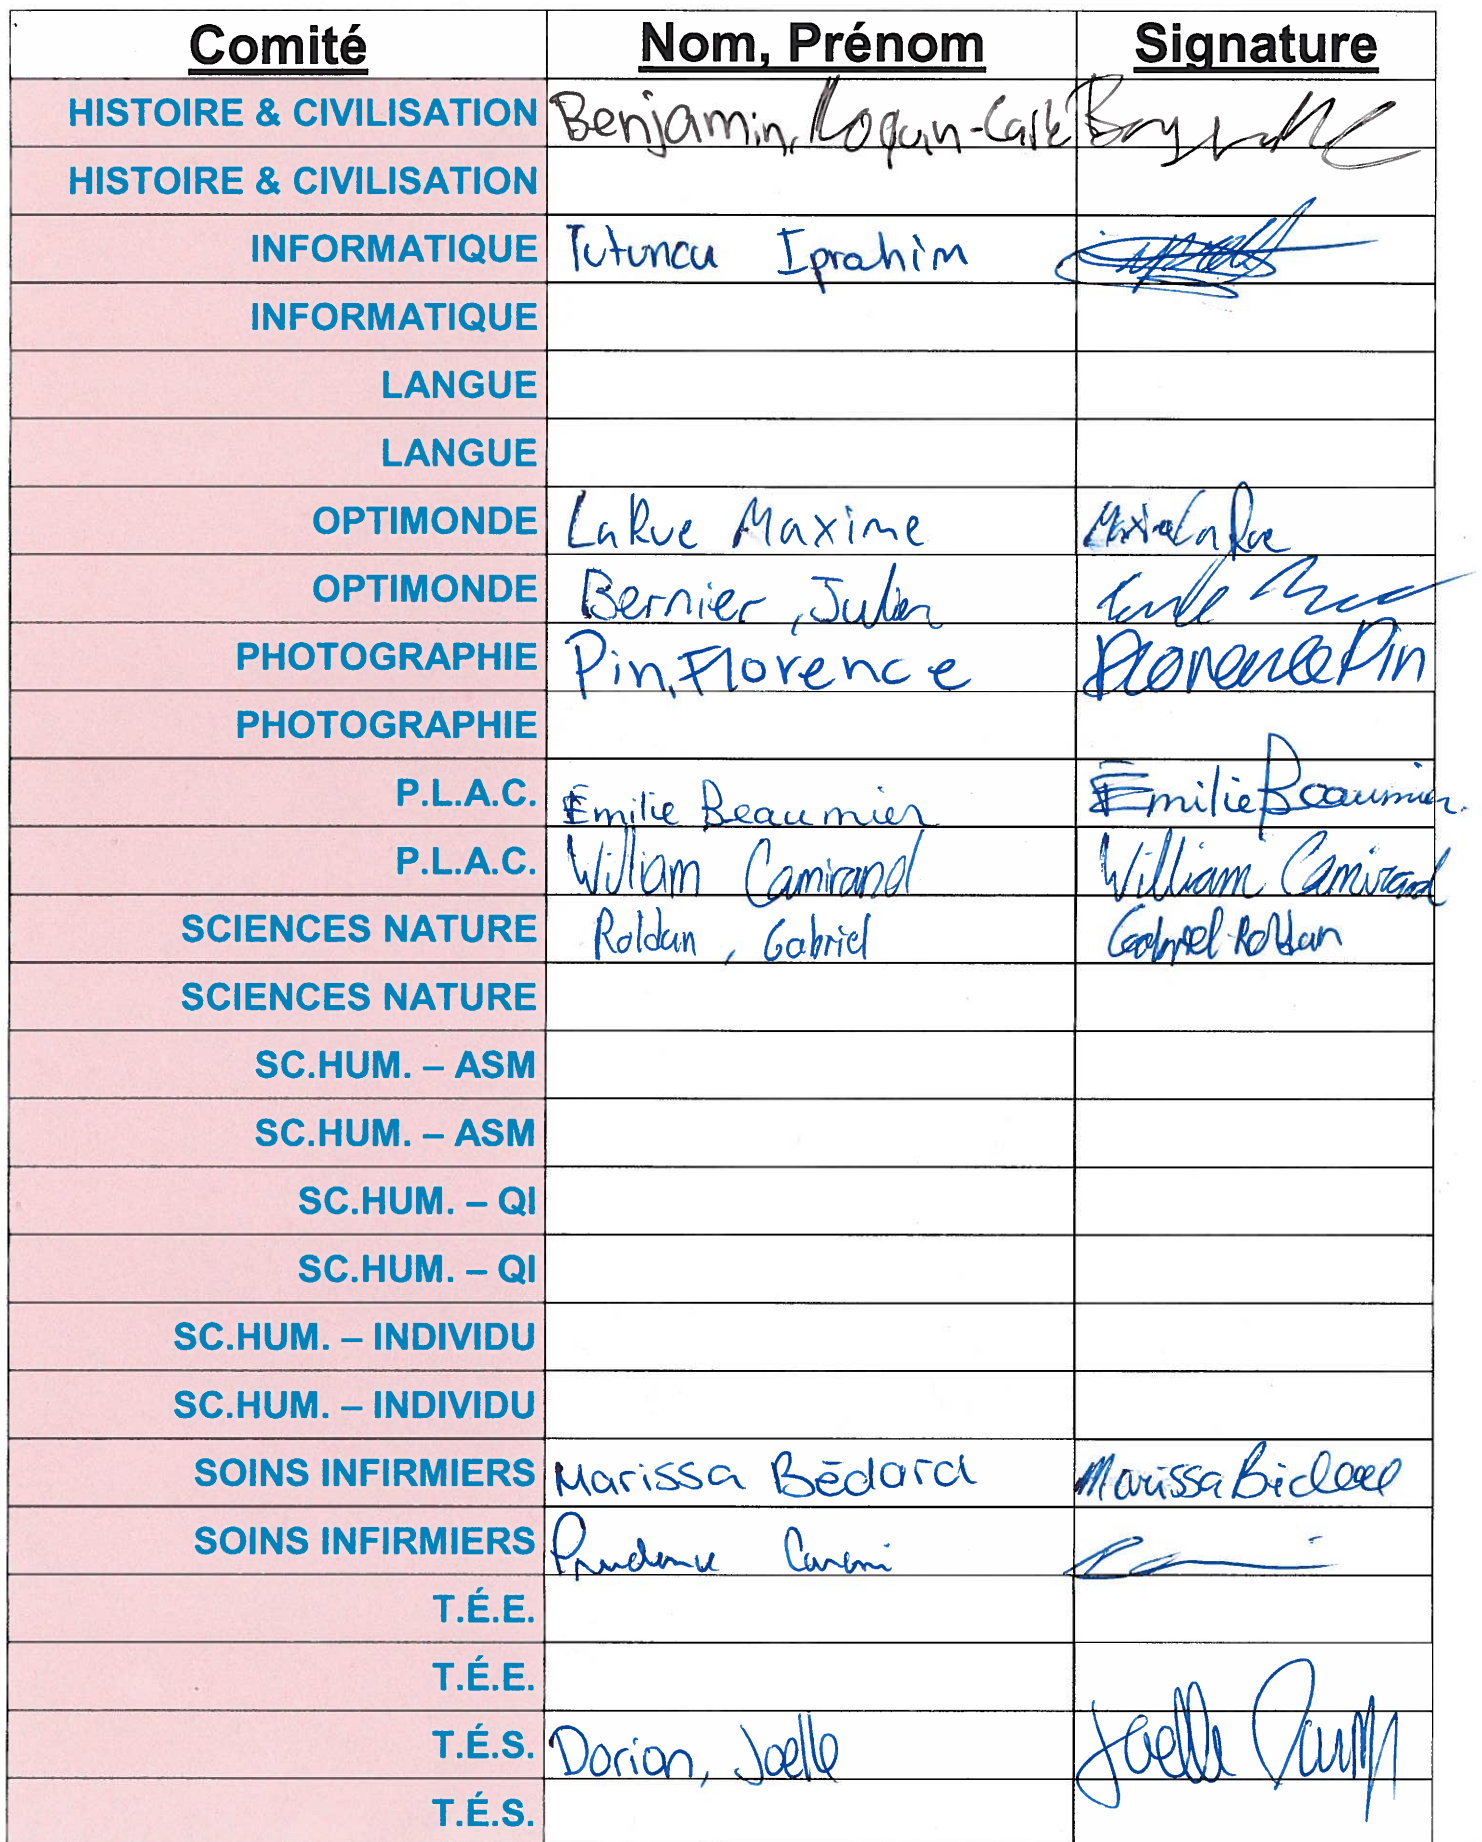 Comité Nom, Prénom Signature
HISTOIRE & CIVILISATION Benjamin,
HISTOIRE & CIVILISATION
INFORMATIQUE Tutuncu Iprahim
INFORMATIQUE
LANGUE
LANGUE
OPTIMONDE LaRue Maxime Maxime LaRue
OPTIMONDE Bernier, Julien
PHOTOGRAPHIE Pin, Florence Florence Pin
PHOTOGRAPHIE
P.L.A.C. Émilie Beaumier Émilie Beaumier
P.L.A.C. William Camirand William Camirand
SCIENCES NATURE Roldan, Gabriel Gabriel Roldan
SCIENCES NATURE
SC.HUM. – ASM
SC.HUM. – ASM
SC.HUM. – QI
SC.HUM. – QI
SC.HUM. – INDIVIDU
SC.HUM. – INDIVIDU
SOINS INFIRMIERS Marissa Bédard Marissa Bédard
SOINS INFIRMIERS Prudence
T.É.E.
T.É.E.
T.É.S. Dorion, Joelle Joelle
T.É.S.